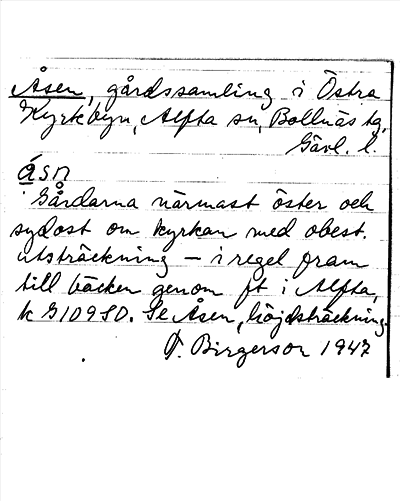 Åsen, gårdssamling i Östra
Kyrkbyn, Alfta sn, Bollnäs tg,
Gävl. l.
åsn
Gårdarna närmast öster och
sydost om kyrkan med obest.
utsträckning – i regel fram
till bäcken genom pt i Alfta,
k G109SO. Se Åsen, höjdsträckning.
Birgerson 1947